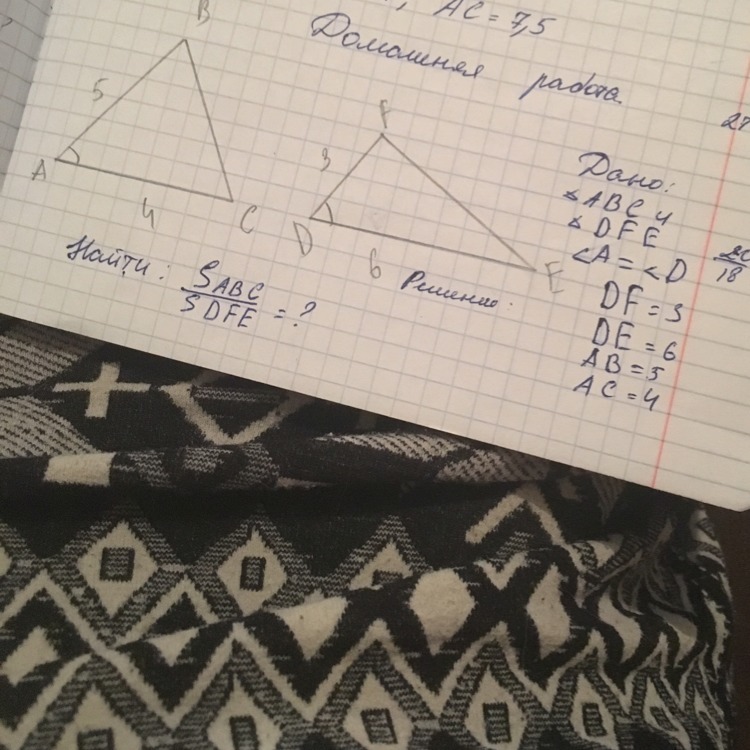 AC = 7,5
Домашняя работа
B
5
A
4
C
F
3
D
6
E
Найти: SABC
SDFE = ?
Решение:
Дано:
△ABC и
△DFE
<A = <D
DF = 3
DE = 6
AB = 5
AC = 4
18